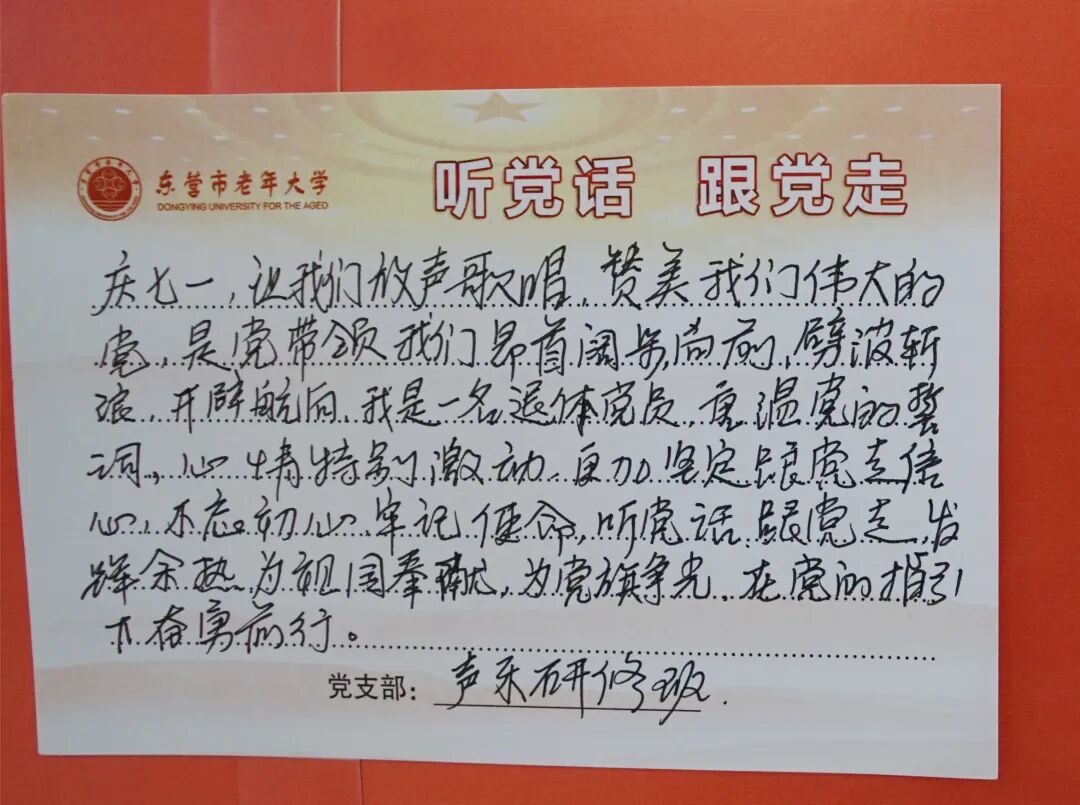 东营市老年大学
DONGYING UNIVERSITY FOR THE AGED
听党话 跟党走
庆七一，让我们放声歌唱，赞美我们伟大的
党，是党带领我们昂首阔步向前，劈波斩
浪，开辟航向，我是一名退休党员，重温党的誓
词，心情特别激动，更加坚定跟党走信
心，不忘初心，牢记使命，听党话，跟党走，发
辉余热，为祖国奉献，为党旗争光，在党的指引
下奋勇前行。
党支部：声乐研修班.